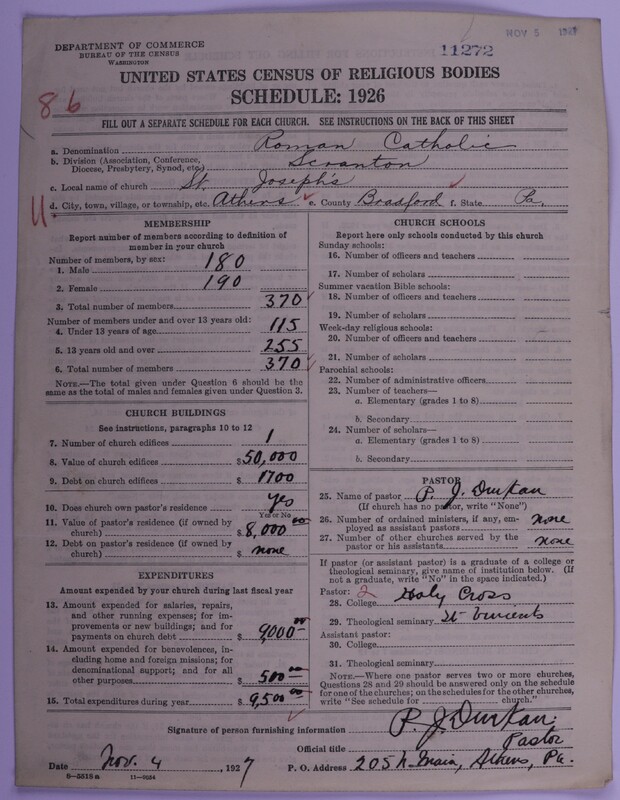 NOV 5 1927
11272
DEPARTMENT OF COMMERCE
BUREAU OF THE CENSUS
WASHINGTON
UNITED STATES CENSUS OF RELIGIOUS BODIES
SCHEDULE: 1926
86
FILL OUT A SEPARATE SCHEDULE FOR EACH CHURCH. SEE INSTRUCTIONS ON THE BACK OF THIS SHEET
a. Denomination Roman Catholic
b. Division (Association, Conference, Diocese, Presbytery, Synod, etc.) Scranton
c. Local name of church St. Joseph's
11 d. City, town, village, or township, etc. Athens e. County Bradford f. State Pa.
MEMBERSHIP
Report number of members according to definition of
member in your church
Number of members, by sex:
1. Male 180
2. Female 190
3. Total number of members 370
Number of members under and over 13 years old:
4. Under 13 years of age 115
5. 13 years old and over 255
6. Total number of members 370
NOTE.—The total given under Question 6 should be the
same as the total of males and females given under Question 3.
CHURCH BUILDINGS
See instructions, paragraphs 10 to 12
7. Number of church edifices 1
8. Value of church edifices $50,000
9. Debt on church edifices $1700
10. Does church own pastor's residence yes
Yes or No
11. Value of pastor's residence (if owned by
church) $8,000 00
12. Debt on pastor's residence (if owned by
church) $ none
EXPENDITURES
Amount expended by your church during last fiscal year
13. Amount expended for salaries, repairs,
and other running expenses; for im-
provements or new buildings; and for
payments on church debt $9000 00
14. Amount expended for benevolences,
including home and foreign missions; for
denominational support; and for all
other purposes $500 00
15. Total expenditures during year $9,500 00
CHURCH SCHOOLS
Report here only schools conducted by this church
Sunday schools:
16. Number of officers and teachers
17. Number of scholars
Summer vacation Bible schools:
18. Number of officers and teachers
19. Number of scholars
Week-day religious schools:
20. Number of officers and teachers
21. Number of scholars
Parochial schools:
22. Number of administrative officers
23. Number of teachers—
a. Elementary (grades 1 to 8)
b. Secondary
24. Number of scholars—
a. Elementary (grades 1 to 8)
b. Secondary
PASTOR
25. Name of pastor P. J. Durkan
(If church has no pastor, write "None")
26. Number of ordained ministers, if any, em-
ployed as assistant pastors none
27. Number of other churches served by the
pastor or his assistants none
If pastor (or assistant pastor) is a graduate of a college or
theological seminary, give name of institution below. (If
not a graduate, write "No" in the space indicated.)
Pastor: 2
28. College Holy Cross
29. Theological seminary St Vincents
Assistant pastor:
30. College
31. Theological seminary
NOTE.—Where one pastor serves two or more churches,
Questions 28 and 29 should be answered only on the schedule
for one of the churches; on the schedules for the other churches,
write "See schedule for church."
Signature of person furnishing information P. J. Durkan
Official title Pastor
Date Nov. 4, 1927 P. O. Address 205 N. Main, Athens, Pa.
8—5518a 11—9034